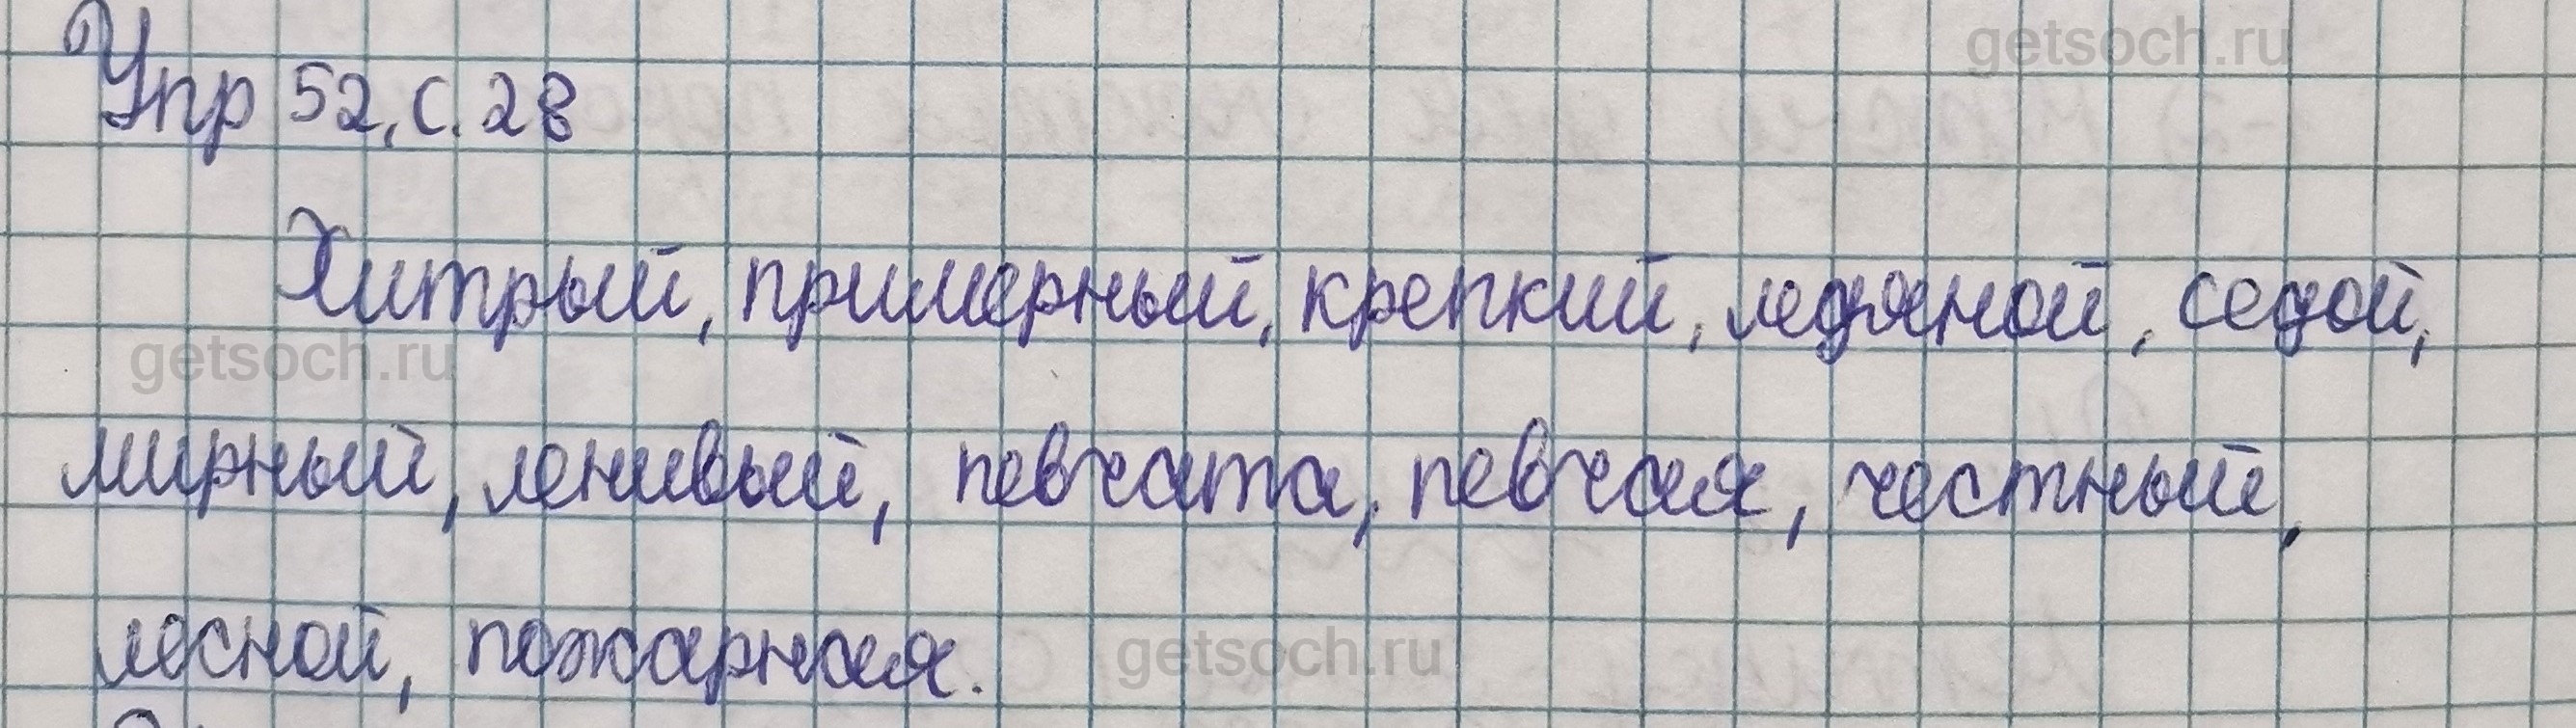 getsoch.ru
Упр 52, с. 28
Хитрый, примерный, крепкий, ледяной, седой,
getsoch.ru
мирный, ленивый, певчата, певчая, честный,
лесной, пожарная.
getsoch.ru